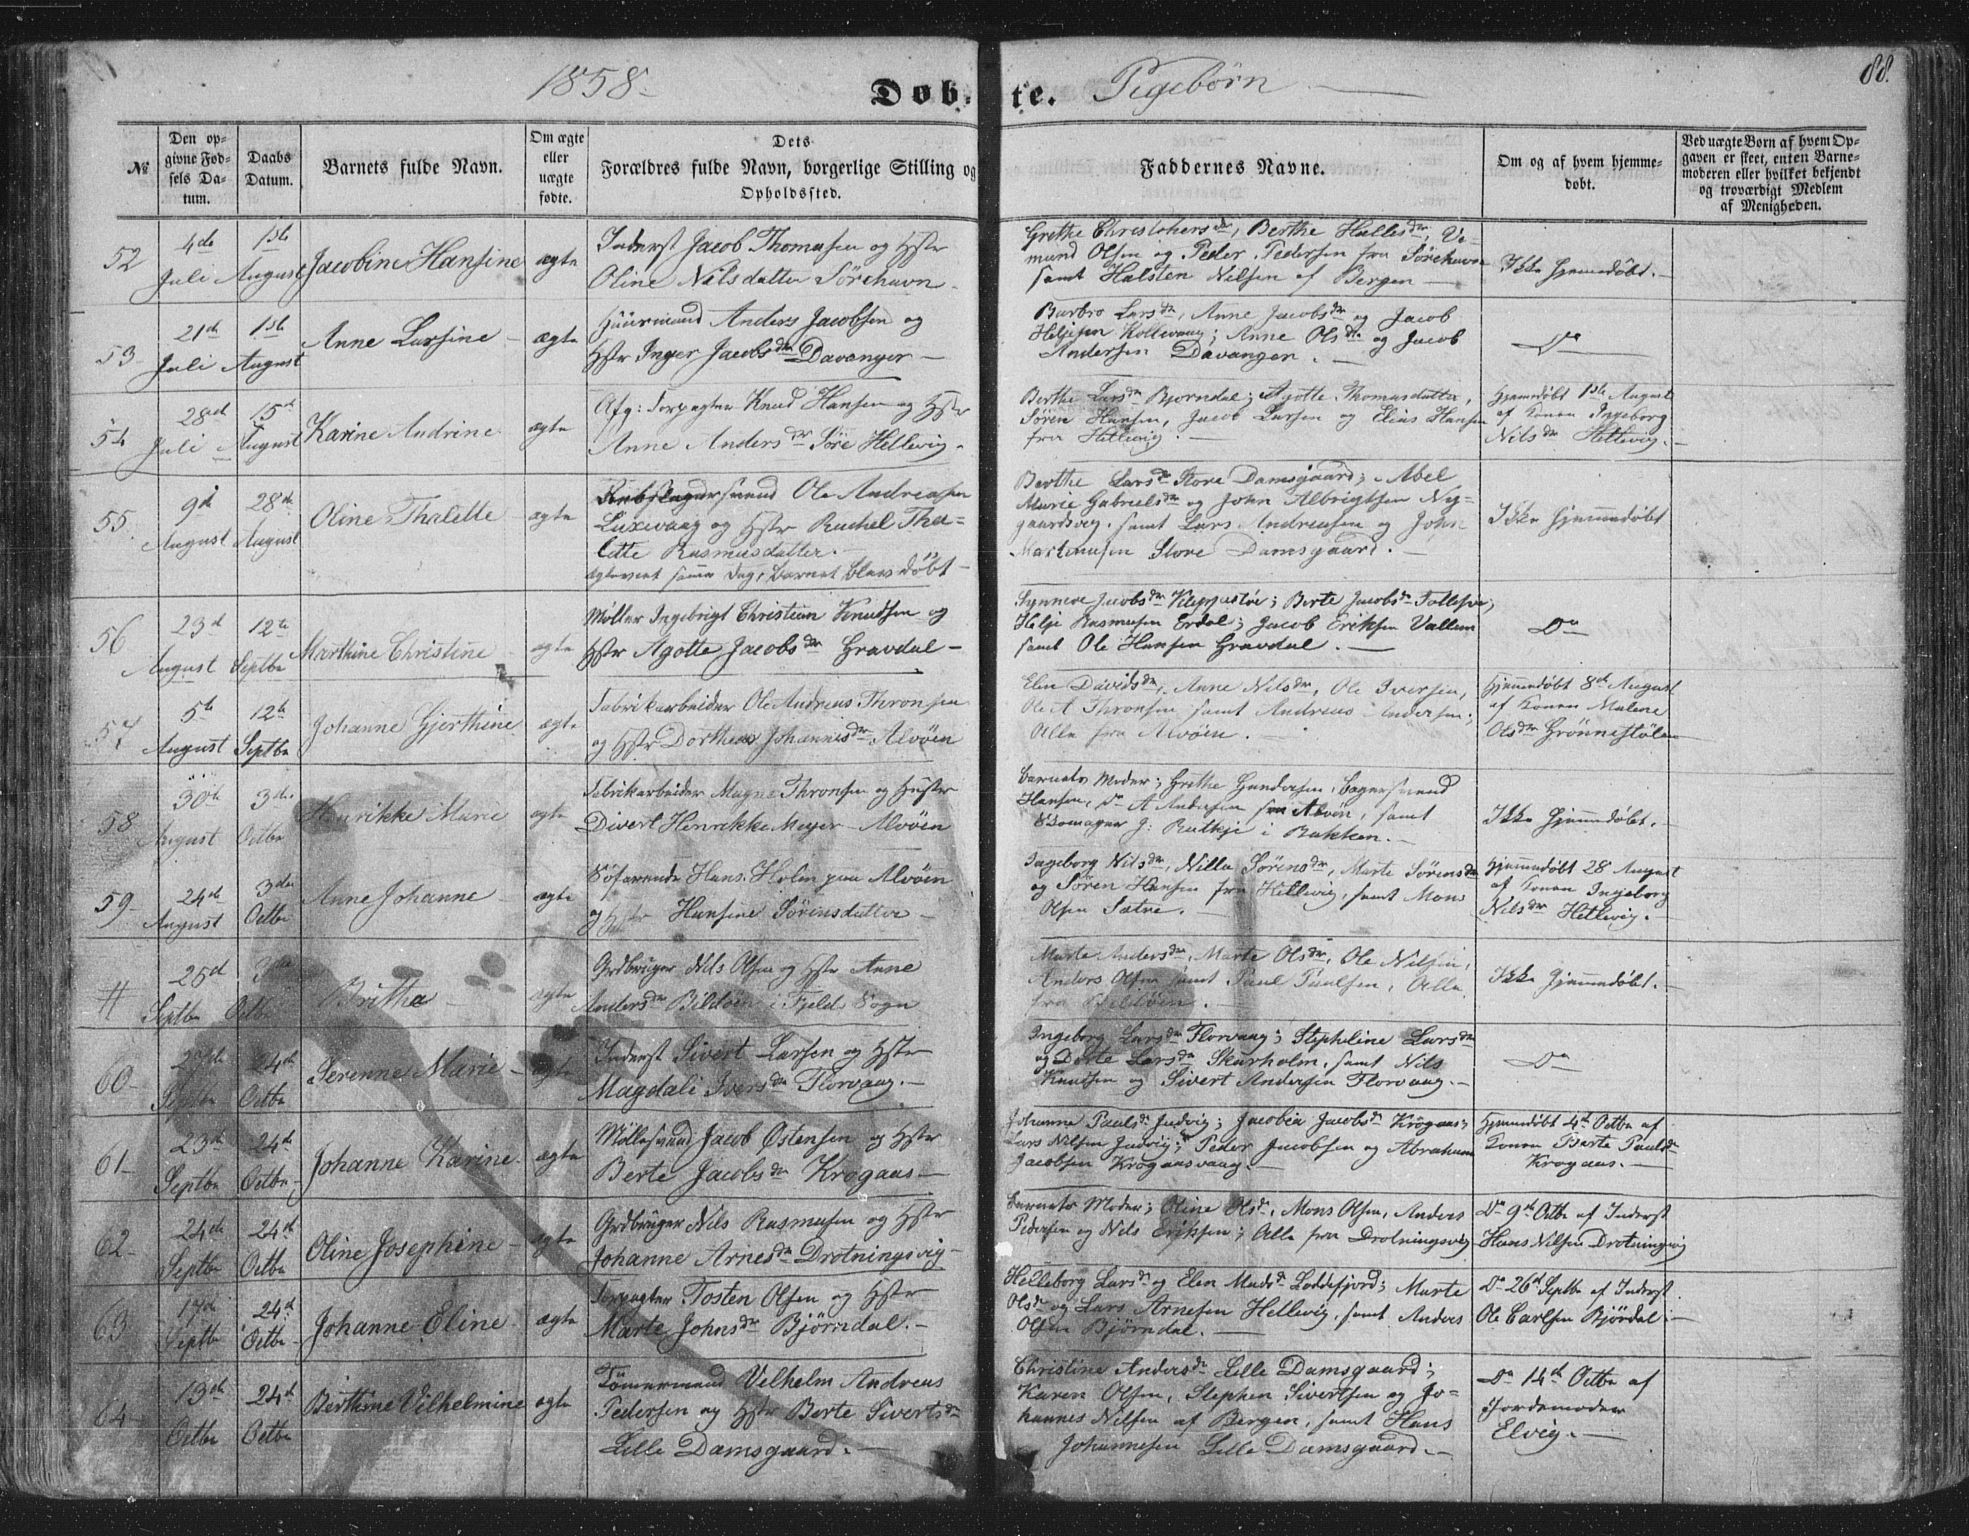 1858 Døb- te. Pigebørn 88.
№
Den op-
givne Fød-
sels Da-
tum.
Daabs
Datum.
Barnets fulde Navn.
Om ægte
eller
uægte
fødte.
Dets
Forældres fulde Navn, borgerlige Stilling og
Opholdssted.
Faddernes Navne.
Om og af hvem hjemme-
døbt.
Ved uægte Børn af hvem Op-
gaven er skeet, enten Barne-
moderen eller hvilket bekjendt
og troværdigt Medlem
af Menigheden.
52
4de
Juli
1ste
August
Jacobine Hansine
ægte
Inderst Jacob Thomasen og Hstr
Oline Nilsdatter Sörehavn
Grethe Christophersdr, Berthe Hallesdr, Ve-
mund Olsen og Peder Pedersen fra Sörehavn
samt Halsten Nilsen af Bergen
Ikke hjemmedøbt.
53
21de
Juli
1ste
August
Anne Larsine
ægte
Huurmand Anders Jacobsen og
Hstr Inger Jacobsdr Davanger
Barbro Larsdr, Anne Jacobsdr og Jacob
Helgesen Kollevaag; Anne Olsdr og Jacob
Andersen Davanger.
Do
54
28de
Juli
15de
August
Karine Andrine
ægte
Afg: Forpagter Knud Hansen og Hstr
Anne Andersdr Söre Hellevig
Berthe Larsdr Bjørndal; Agotte Thomasdatter,
Sören Hansen, Jacob Larsen og Elias Hansen
fra Hellevig.
Hjemmedøbt 1ste August
af Konen Ingeborg
Nilsdr Hellevig.
55.
9de
August
28de
August
Oline Thalette
ægte
Rebslagersvend Ole Andreasen
Laxevaag og Hstr Rachel Tha-
lette Rasmusdatter.
ægteviet samme Dag, Barnet blev døbt
Berthe Larsdr Store Damsgaard; Abel
Marie Gabrielsdr og John Albrigtsen Ny-
gaardsvig, samt Lars Andreasen og Johs
Martinusen Store Damsgaard.
Ikke hjemmedøbt
56
23d
August
12te
Septbr
Marthine Christine
ægte
Møller Ingebrigt Christian Knudsen og
Hstr Agotte Jacobsdr Gravdal
Synneve Jacobsdr; Berte Jacobsdr
Helje Rasmusen Erdal; Jacob Eriksen Vallem
samt Ole Hansen Gravdal.
Do
57
5te
August
12te
Septbr
Johanne Gjerthine
ægte
Fabrikarbeider Ole Andreas Thronsen
og Hstr Dorthea Johannisdr Alvöen
Elen Davidsdr, Anne Nilsdr, Ole Iversen,
Ole A Thronsen samt Andreas Andersen;
Alle fra Alvöen.
Hjemmedøbt 8de August
af Konen Malene
Olsdr Grönnestölen
58
30te
August
3die
Octbr
Henrikke Marie
ægte
Fabrikarbeider Magne Thronsen og Hustr
Divert Henrikke Meyer Alvöen
Barnets Moder; Grethe Gundersen, Bagersvend
Hansen, Do A Andersen fra Alvöen, samt
Skomager J: Rutkje i Bakken.
Ikke hjemmedøbt.
59
24de
August
3die
Octbr
Anne Johanne
ægte
Söfarende Hans Holm paa Alvöen
og Hstr Hansine Sörensdatter
Ingeborg Nilsdr, Nille Sörensdr, Marte Sörensdr
og Sören Hansen fra Hellevig, samt Mons
Olsen Sætre.
Hjemmedøbt 28 August
af Konen Ingeborg
Nilsdr Hellevig.
#
25d
Septbr
3die
Octbr
Britha
ægte
Grdbruger Nils Olsen og Hstr Anne
Andersdr Bildöen i Fjeld Sogn
Marte Andersdr, Marte Olsdr, Ole Nilsen,
Anders Olsen samt Paul Paulsen, Alle
fra Bildöen.
Ikke hjemmedøbt.
60
Septbr
24de
Octbr
Serenne Marie
ægte
Inderst Sivert Larsen og Hstr
Magdali Iversdr Florvaag.
Ingeborg Larsdr Florvaag; Stepheline Larsdr
og Dorte Larsdr Skarholm, samt Nils
Knudsen og Sivert Andersen Florvaag.
Do
61
23de
Septbr
24de
Octbr
Johanne Karine
ægte
Møllesvend Jacob Østensen og Hstr
Berte Jacobsdr Krogaas
Johanne Paulsdr Judvig; Jacobia Jacobsdr Krogaas;
Lars Nilsen Judvig; Peder Jacobsen og Abraham
Jacobsen Krogaasvaag.
Hjemmedøbt 4de Octbr af
Konen Berte Paulsdr
Krogaas.
62
24de
Septbr
24de
Octbr
Oline Josephine
ægte
Grdbruger Nils Rasmusen og Hstr
Johanne Arnesdr Drotningsvig
Barnets Moder; Oline Olsdr, Mons Olsen, Anders
Pedersen og Nils Eriksen; Alle fra Drotningsvig
Do 9de Octbr af Inderst
Hans Nilsen Drotningsvig
63
17de
Septbr
24d
Octbr
Johanne Eline
ægte
Forpagter Tosten Olsen og Hstr
Marte Johnsdr Bjørndal.
Helleborg Larsdr og Elen Madsdr Loddefjord; Marte
Olsdr og Lars Arnesen Hellevig, samt Anders
Olsen Bjørndal.
Do 26d Septbr af Inderst
Ole Carlsen Bjørdal
64
13de
Octbr
24d
Octbr
Berthine Vilhelmine
ægte
Tömmermand Vilhelm Andreas
Pedersen og Hstr Berte Sivertsdr
Lille Damsgaard.
Christine Andersdr Lille Damsgaard;
Karen Olsen, Stephen Sivertsen og Jo-
hannes Nilsen af Bergen, samt Hans
Johannesen Lille Damsgaard.
Do 14de Octbr af
Jordemoder
Elvig.